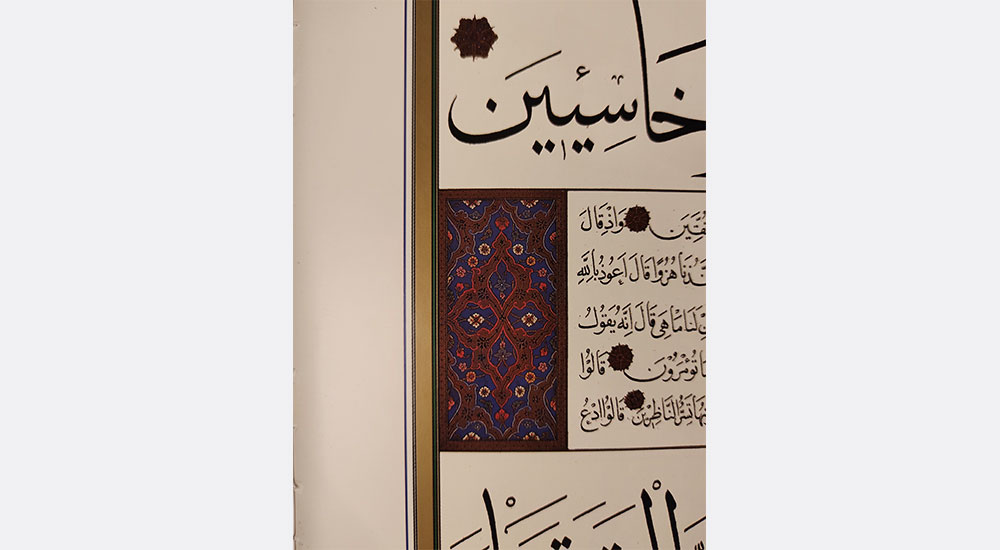 خَاسِئِينَ
وَاِذْ قَالَ
هُزُوًا قَالَ اَعُوذُ بِاللّٰهِ
لَنَا مَا هِيَ قَالَ اِنَّهُ يَقُولُ
تُؤْمَرُونَ قَالُوا
تَسُرُّ النَّاظِرِينَ قَالُوا ادْعُ